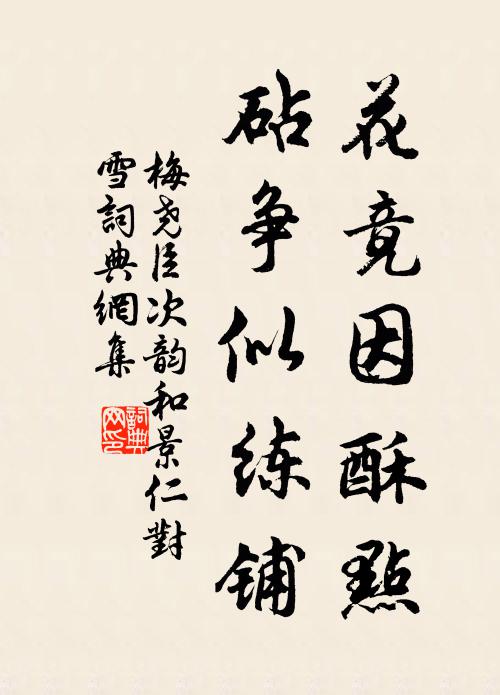 花竟因酥點
砧争似练铺
梅尧臣次韵和景仁對
雪詞典網集
詞典网印